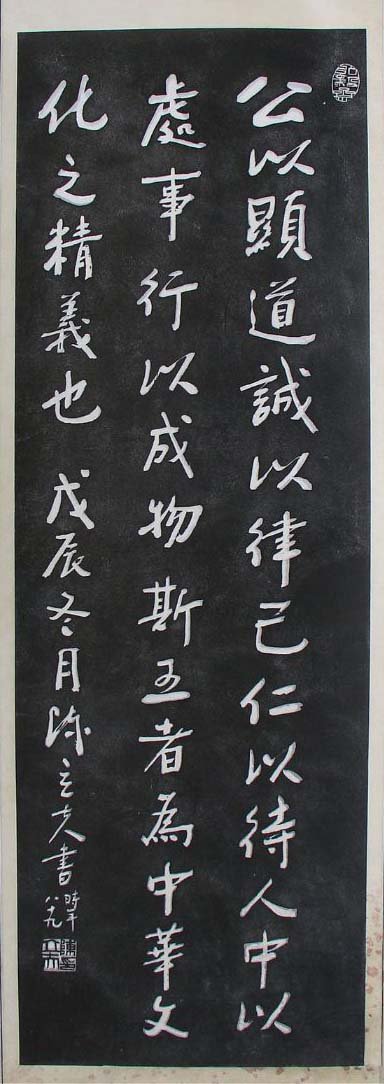 公以顯道誠以律己仁以待人中以
處事行以成物斯五者為中華文
化之精義也 戊辰冬月陳立夫書
時年
八九